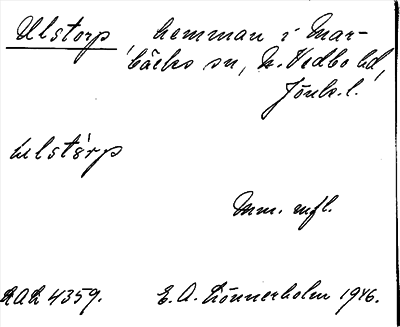 Ulstorp, hemman i Mar-
bäcks sn, N. Vedbo hd,
Jönk. l.
ulstårp
Mm. mfl.
RAÄ 4359. E. A. Lönnerholm 1946.